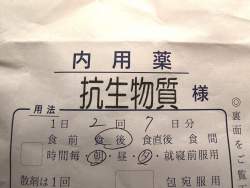 内用薬
抗生物質 様
用法
1日 2回 7日分
食前 食後 食直後 食間
時間毎 朝・昼・夕・就寝前服用
散剤は1回 包宛服用
◎裏面をご覧